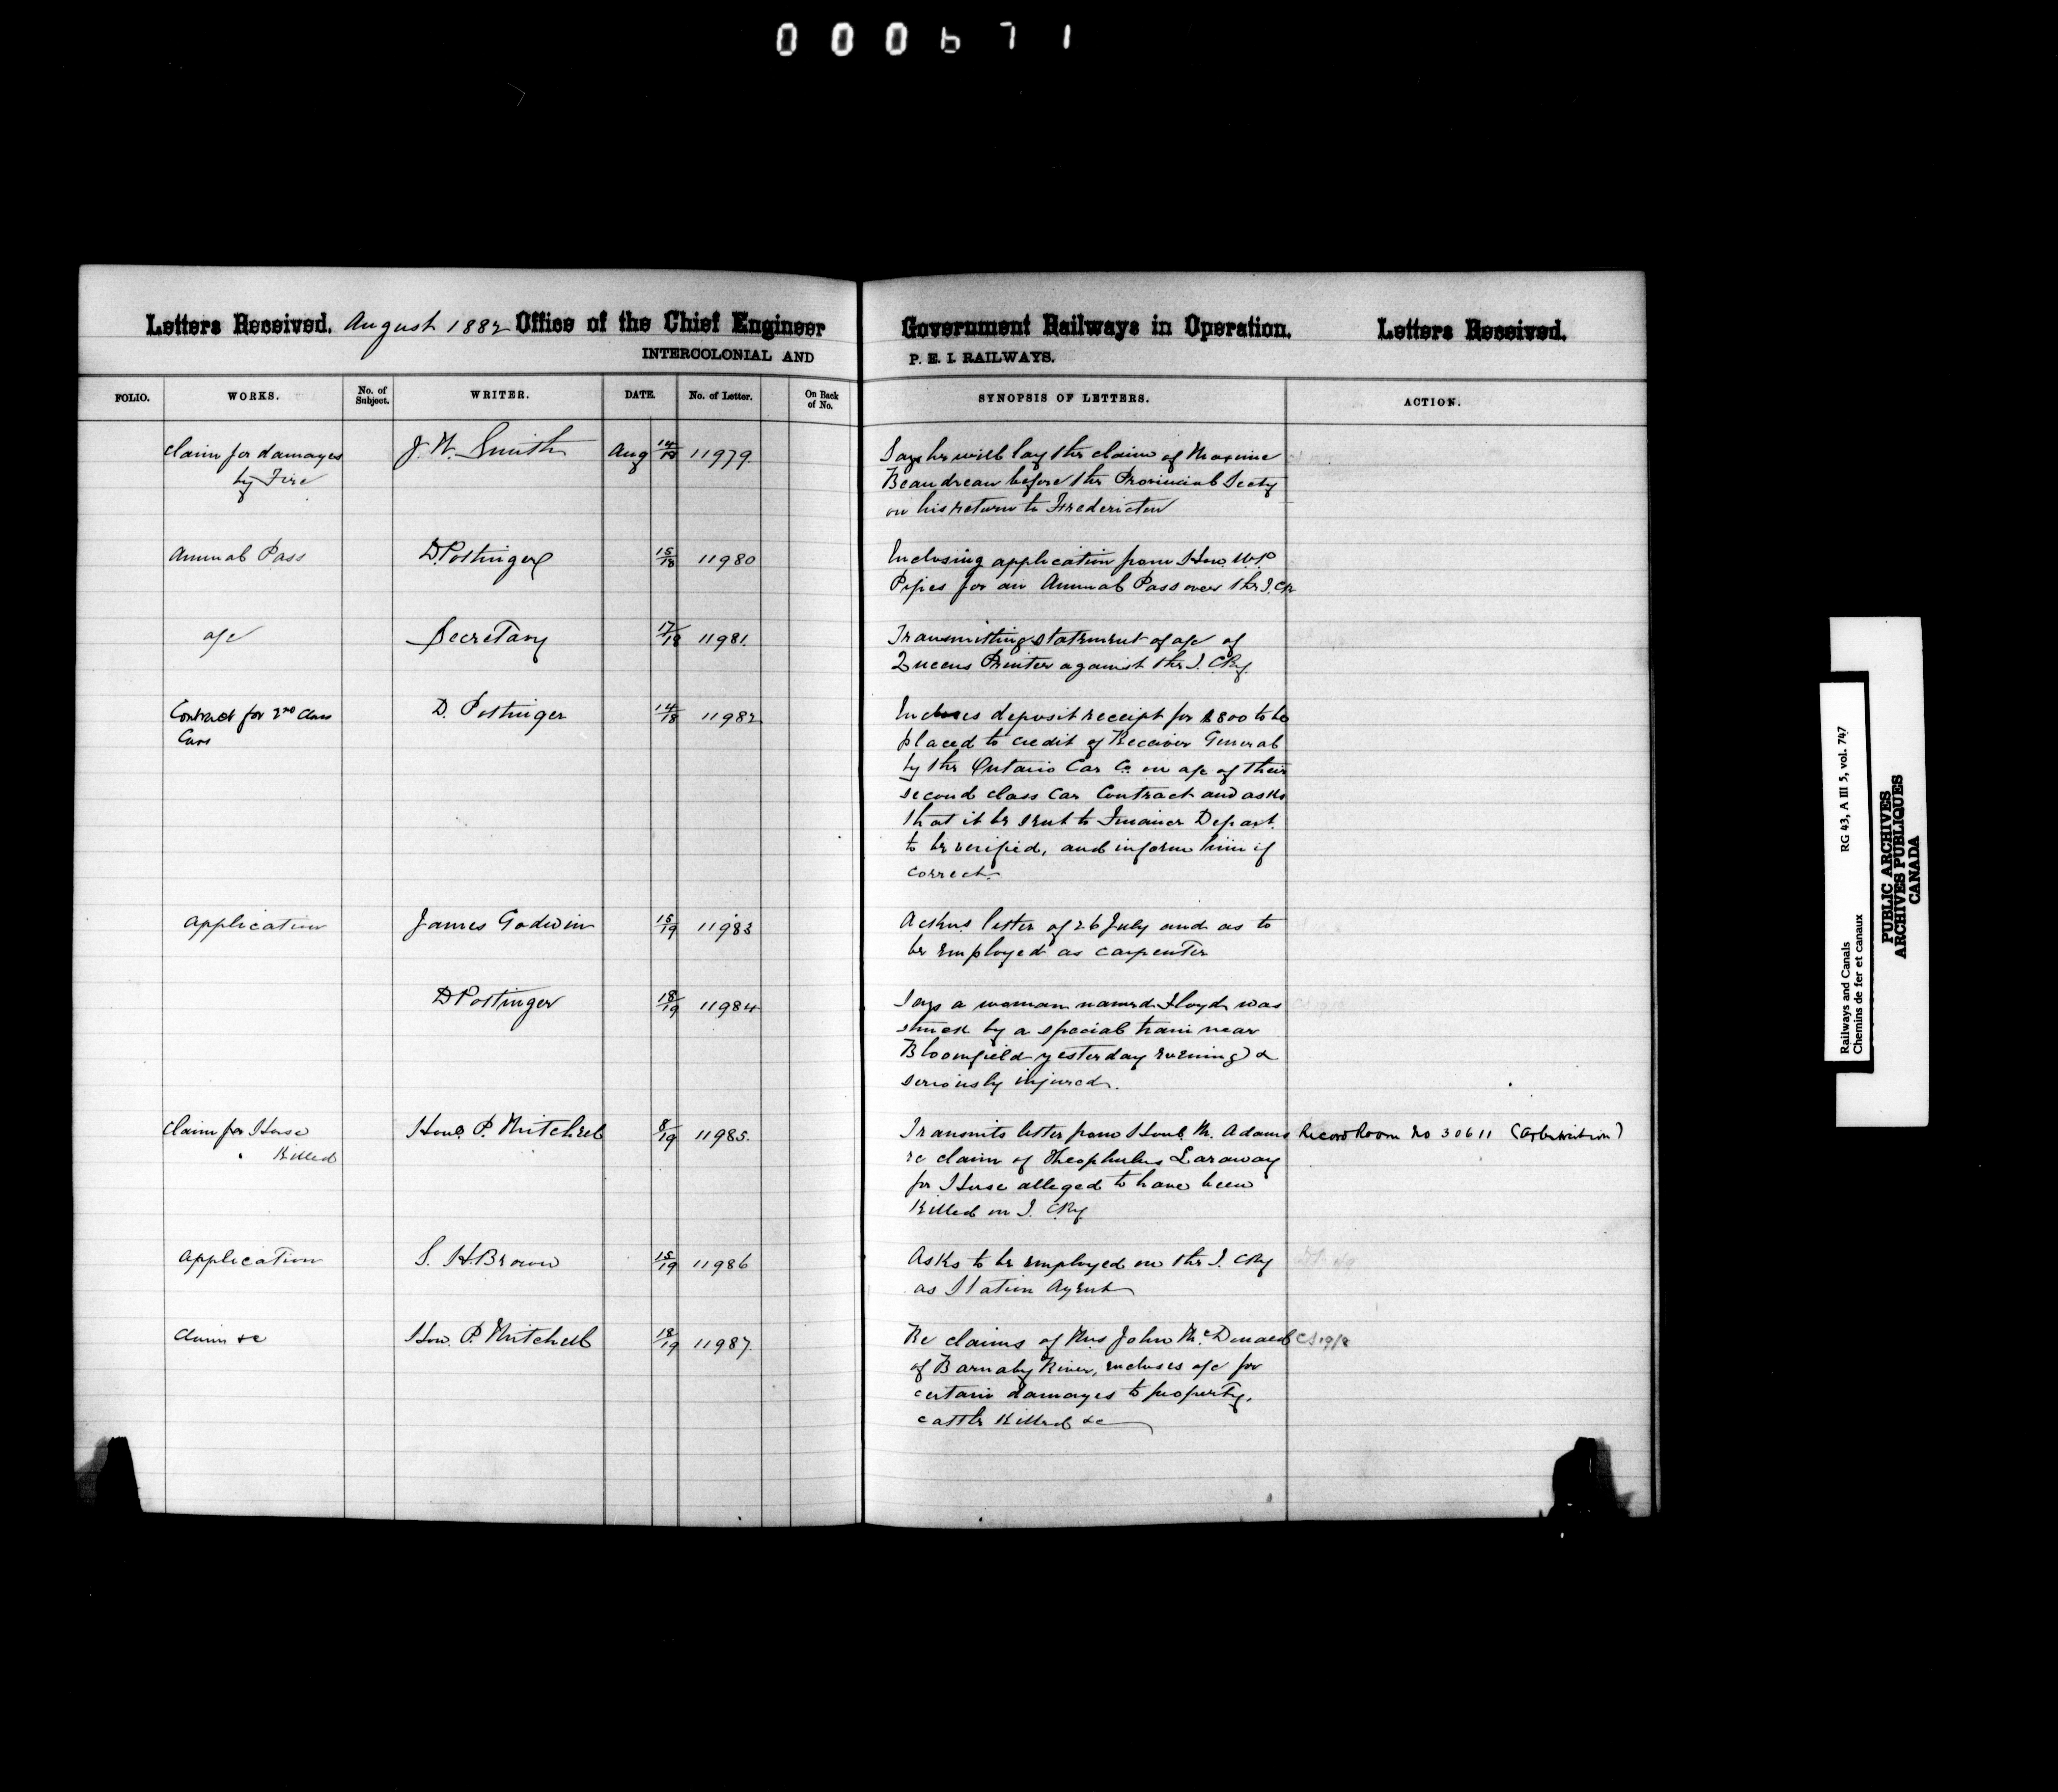 000671
Letters Received. August 1882 Office of the Chief Engineer
INTERCOLONIAL AND
Government Railways in Operation. Letters Received.
P. E. I. RAILWAYS.
FOLIO. WORKS. No. of Subject. WRITER. DATE. No. of Letter. On Back of No. SYNOPSIS OF LETTERS. ACTION.
Claim for damages by Fire J. W. Smith Aug 14/18 11979. Says he will lay the claim of Maxime
Beaudreau before the Provincial Secty
on his return to Fredericton
Annual Pass D. Pottinger 15/18 11980 Enclosing application from Hon. W.P.
Pipes for an Annual Pass over the I.CR
a/c Secretary 17/18 11981. Transmitting statement of a/c of
Queens Printer against the I. CRy.
Contract for 2nd Class Cars D. Pottinger 14/18 11982 Encloses deposit receipt for $800 to be
placed to credit of Receiver General
by the Ontario Car Co on a/c of their
second class Car Contract and asks
that it be sent to Finance Depart.
to be verified, and inform him if
correct.
Application James Godwin 15/19 11983 Ackns letter of 26 July and as to
be employed as carpenter
D Pottinger 18/19 11984 Says a woman named Floyd was
struck by a special train near
Bloomfield yesterday evening &
seriously injured.
Claim for Horse Killed Hon. P. Mitchell 8/19 11985. Transmits letter from Honl. M. Adams Record Room No 30611 (Arbitration)
re claim of Theophulus Laraway
for Horse alleged to have been
Killed on I. CRy
Application S. H. Brown 15/19 11986 Asks to be employed on the I. CRy
as Station Agent
Claim &c Hon. P. Mitchell 18/19 11987. Re claims of Mrs John McDonald
of Barnaby River, encloses a/c for
certain damages to property,
cattle Killed &c
Railways and Canals RG 43, A III 5, vol. 747
Chemins de fer et canaux
PUBLIC ARCHIVES
ARCHIVES PUBLIQUES
CANADA